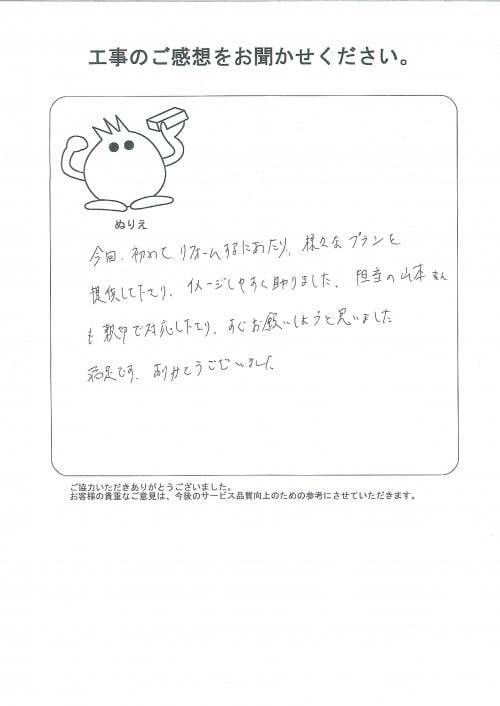 工事のご感想をお聞かせください。
ぬりえ
今回、初めてリフォームするにあたり、様々なプランを
提供して下さり、イメージしやすく助りました。担当の山本さん
も親切で対応して下さり、すぐお願いしようと思いました
満足です。ありがとうございました
ご協力いただきありがとうございました。
お客様の貴重なご意見は、今後のサービス品質向上のための参考にさせていただきます。